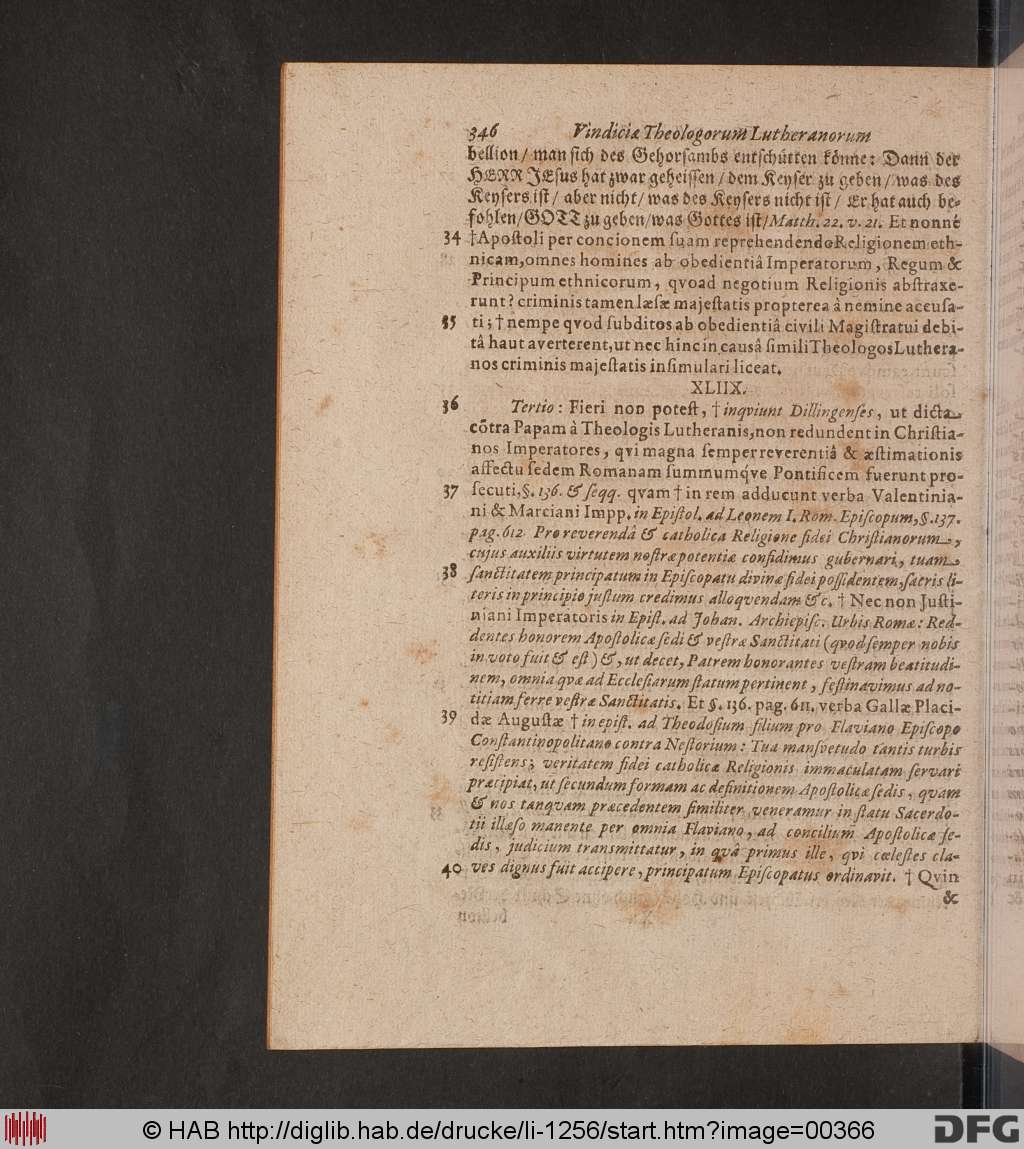 346 Vindiciæ Theologorum Lutheranorum
bellion / man sich des Gehorsambs entschütten könne: Dann der
HERR JEsus hat zwar geheissen / dem Keyser zu geben / was des
Keysers ist / aber nicht / was des Keysers nicht ist / Er hat auch be-
fohlen / GOTT zu geben / was Gottes ist / Matth. 22. v. 21. Et nonne
34 †Apostoli per concionem suam reprehendendo Religionem eth-
nicam, omnes homines ab obedientiâ Imperatorum, Regum &
Principum ethnicorum, qvoad negotium Religionis abstraxe-
runt? criminis tamen læsæ majestatis propterea à nemine accusa-
35 ti; † nempe qvod subditos ab obedientiâ civili Magistratui debi-
tâ haut averterent, ut nec hinc in causâ simili Theologos Luthera-
nos criminis majestatis insimulari liceat.
XLIIX.
36 Tertio: Fieri non potest, † inqviunt Dillingenses, ut dicta
cõtra Papam à Theologis Lutheranis, non redundent in Christia-
nos Imperatores, qvi magna semper reverentiâ & æstimationis
affectu sedem Romanam summumqve Pontificem fuerunt pro-
37 secuti, §. 136. & seqq. qvam † in rem adducunt verba Valentinia-
ni & Marciani Impp. in Epistol. ad Leonem I. Rom. Episcopum, §. 137.
pag. 612 Pro reverendâ & catholica Religione fidei Christianorum,
cujus auxiliis virtutem nostræ potentiæ confidimus gubernari, tuam
38 sanctitatem principatum in Episcopatu divinæ fidei possidentem, sacris li-
teris in principio justum credimus alloqvendam &c. † Nec non Justi-
niani Imperatoris in Epist. ad Johan. Archiepisc. Urbis Romæ: Red-
dentes honorem Apostolicæ sedi & vestræ Sanctitati (qvod semper nobis
in voto fuit & est) &, ut decet, Patrem honorantes vestram beatitudi-
nem, omnia qvæ ad Ecclesiarum statum pertinent, festinavimus ad no-
titiam ferre vestræ Sanctitatis. Et §. 136. pag. 611. verba Gallæ Placi-
39 dæ Augustæ † in epist. ad Theodosium filium pro Flaviano Episcopo
Constantinopolitano contra Nestorium: Tua mansvetudo tantis turbis
resistens; veritatem fidei catholicæ Religionis immaculatam servari
præcipiat, ut secundum formam ac definitionem Apostolicæ sedis, qvam
& nos tanqvam præcedentem similiter veneramur in statu Sacerdo-
tii illæso manente per omnia Flaviano, ad concilium Apostolicæ se-
dis, judicium transmittatur, in qvâ primus ille, qvi cœlestes cla-
40 ves dignus fuit accipere, principatum Episcopatus ordinavit. † Qvin
&
© HAB http://diglib.hab.de/drucke/li-1256/start.htm?image=00366
DFG